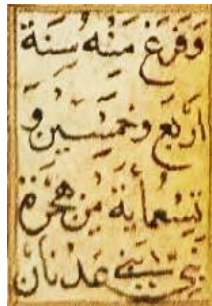 وَفَرَغَ مِنْهُ سَنَةَ
اَرْبَعٍ وَخَمْسِينَ وَ
تِسْعِمِايَة مِنْ هِجْرَةِ
عَدْنَان